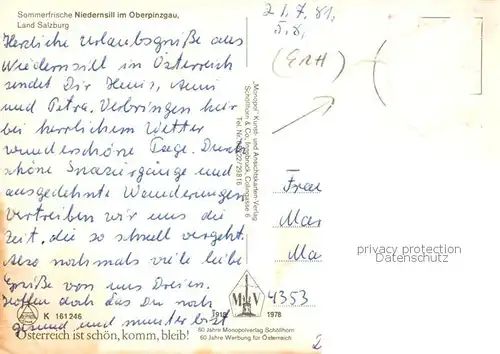 Sommerfrische Niedernsill im Oberpinzgau,
Land Salzburg
Herzliche Urlaubsgrüße aus
Niedernsill in Österreich
sendet Dir Heini,
und Petra. Verbringen hier
bei herrlichem Wetter
wunderschöne Tage. Durch
schöne Spaziergänge und
ausgedehnte Wanderungen
vertreiben wir uns die
Zeit, die so schnell vergeht.
Also nochmals viele liebe
Grüße von uns Dreien.
Hoffen doch das Du noch
gesund und munter bist
K 161246
Österreich ist schön, komm, bleib!
"Monopol" Kunst- und Ansichtskarten-Verlag
Schöllhorn & Co., Innsbruck, Colingasse 6
M V
1918 1978
60 Jahre Monopolverlag Schöllhorn
60 Jahre Werbung für Österreich
21.7.81,
5.8,
(ERH)
Frau
Mar
Ma
4353
privacy protection
Datenschutz